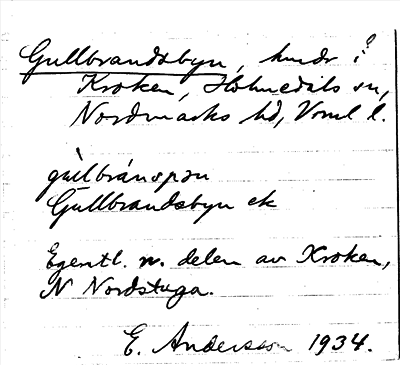 Gullbrandsbyn, hmdr i?
Kroken, Holmedals sn,
Nordmarks hd, Vrml l.
gùlbránspən
Gullbrandsbyn ek
Egentl. n. delen av Kroken,
N Nordstuga.
E. Andersson 1934.